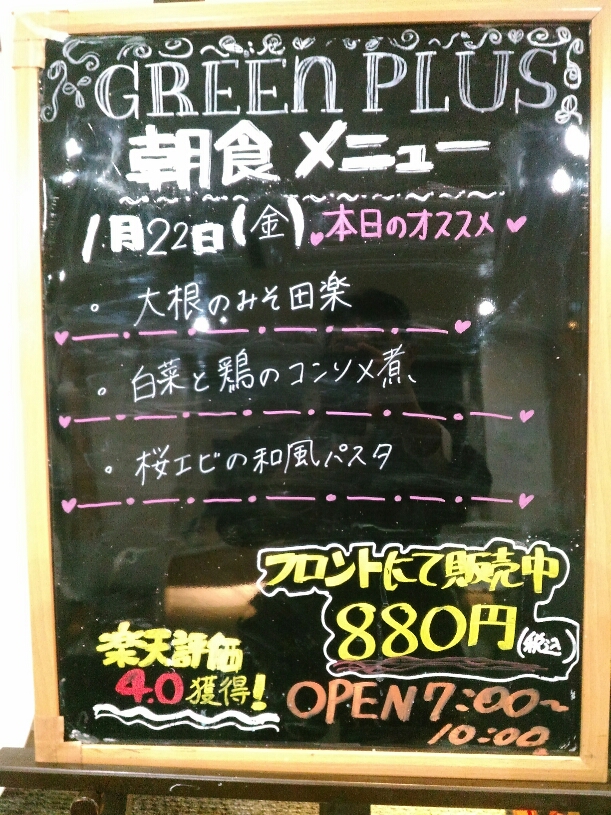 GREEN PLUS
朝食メニュー
1月22日(金) 本日のオススメ
。大根のみそ田楽
。白菜と鶏のコンソメ煮
。桜エビの和風パスタ
フロントにて販売中
880円(税込)
楽天評価
4.0獲得!
OPEN 7:00~
10:00